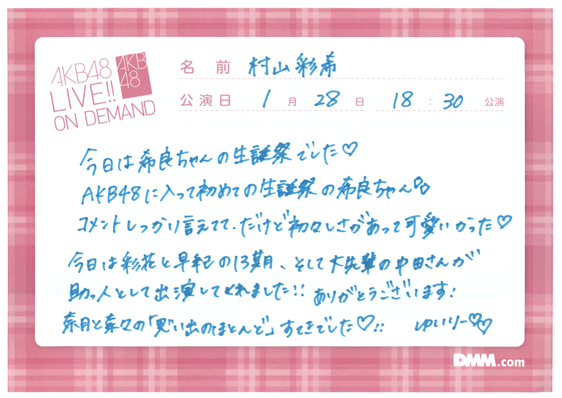 AKB48
LIVE!!
ON DEMAND
AKB
48
名 前 村山彩希
公演日 1月 28日 18:30 公演
今日は希良ちゃんの生誕祭でした♡
AKB48に入って初めての生誕祭の希良ちゃん
コメントしっかり言えてて、だけど初々しさがあって可愛いかった♡
今日は彩花と早紀の13期、そして大先輩の中田さんが
助っ人として出演してくれました!! ありがとうございます!
奈月と奈々の「思い出のほとんど」すてきでした♡!! ゆいりー♡♡
DMM.com